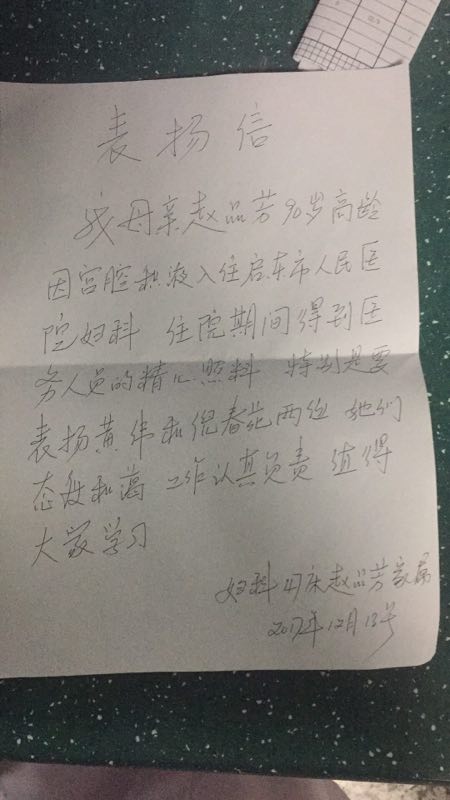 表扬信
我母亲赵品芳90岁高龄
因宫腔积液入住启东市人民医
院妇科 住院期间得到医
务人员的精心照料 特别是要
表扬黄伟和倪春花两位 她们
态度和蔼 工作认真负责 值得
大家学习
妇科47床赵品芳家属
2017年12月13号